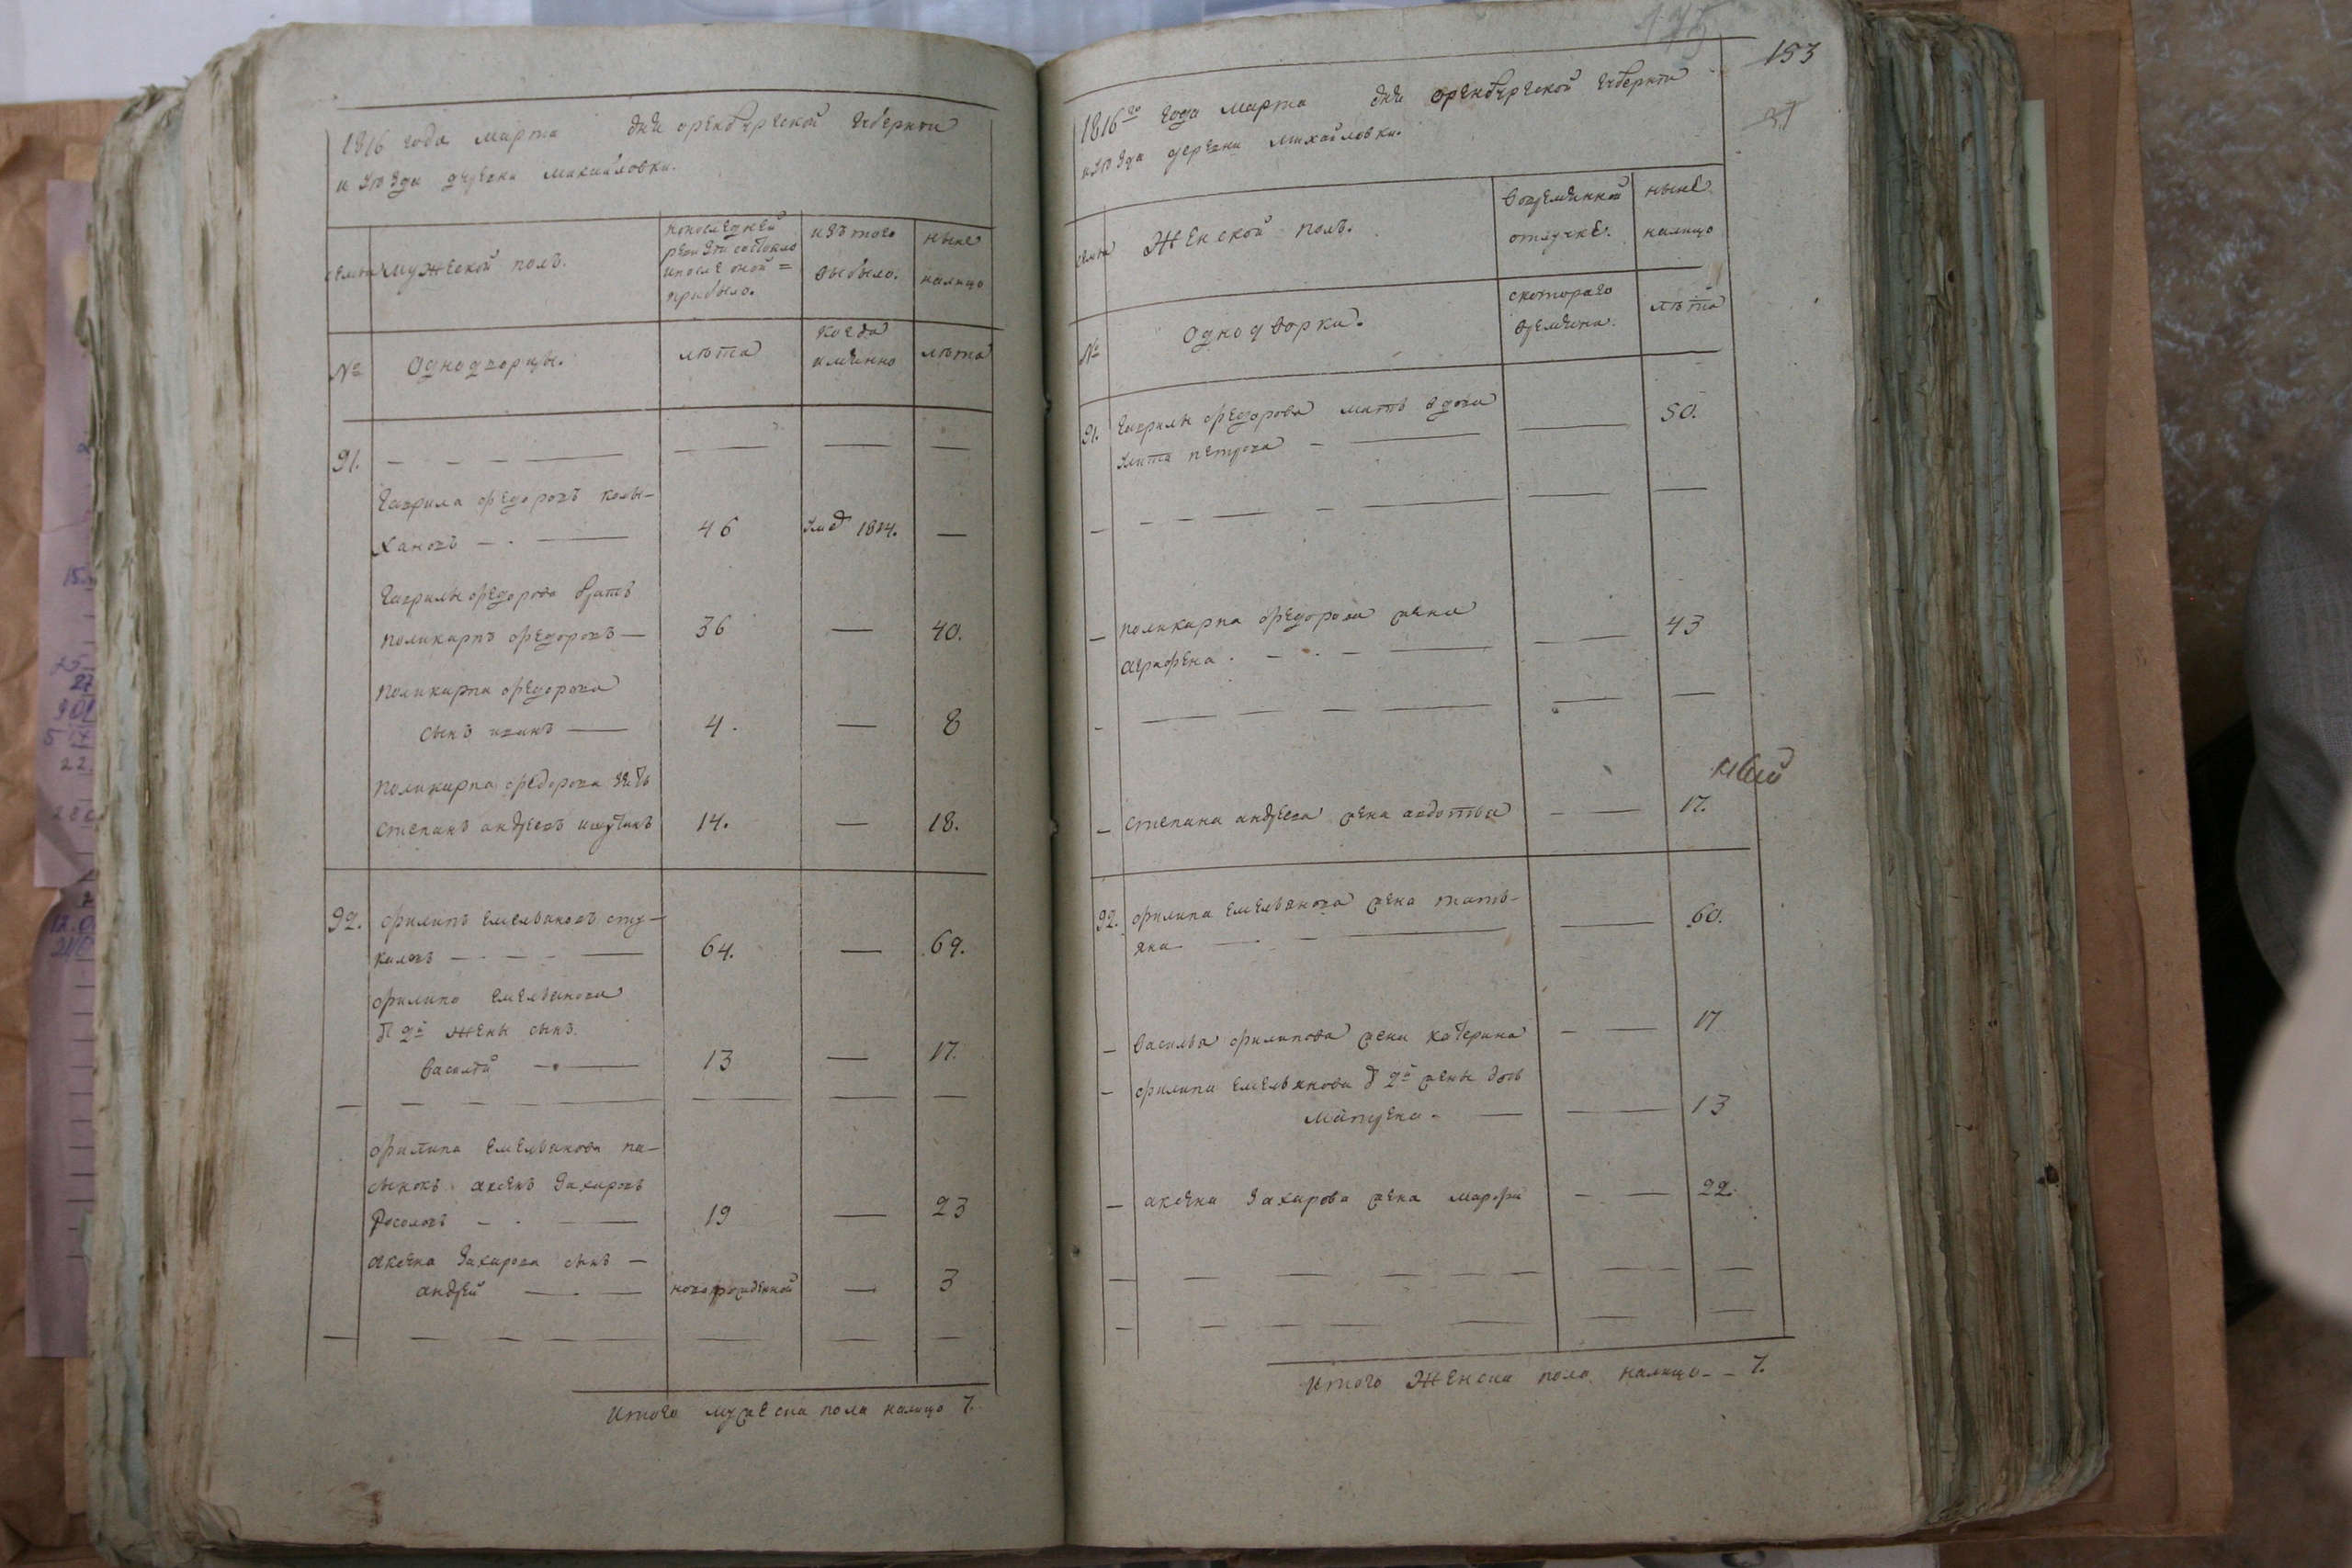 1816 года марта дня оренбургской губернии
и уезда деревни михайловки.
семьи
мужеской полъ.
по последней
ревизии состояло
и после оной =
прибыло.
изъ того
выбыло.
ныне
налицо
№
Однодворцы.
лѣта
когда
имянно
лѣта
91.
Гаврила Федоровъ
хановъ
46
1814.
Гаврилы федорова братъ
поликарпъ федоровъ
36
40.
поликарпа федорова
сынъ иванъ
4.
8
поликарпа федорова зять
степанъ андреевъ
14.
18.
92.
филипъ емельяновъ сту-
каловъ
64.
69.
филипа емельянова
от 2й жены сынъ
василей
13
17.
филипа емельянова па-
сынокъ аксенъ захаровъ
19
23
аксена захарова сынъ
андрей
новорожденной
3
Итого мужеска пола налицо 7.
153
1816го года марта дня оренбургской губернии
и уезда деревни михайловки.
семьи
Женской полъ.
во временной
отлучке.
ныне
налицо
№
Однодворки.
с котораго
времяни.
лѣта
91.
Гаврилы федорова мать вдова
улита петрова
50.
поликарпа федорова жена
аграфена.
43
степана андреева жена авдотья
17.
92.
филипа емельянова жена тать-
яна
60.
василья филипова жена катерина
17
филипа емельянова от 2й жены дочь
матрена.
13
аксена захарова жена марфа
22.
Итого Женска пола налицо 7.